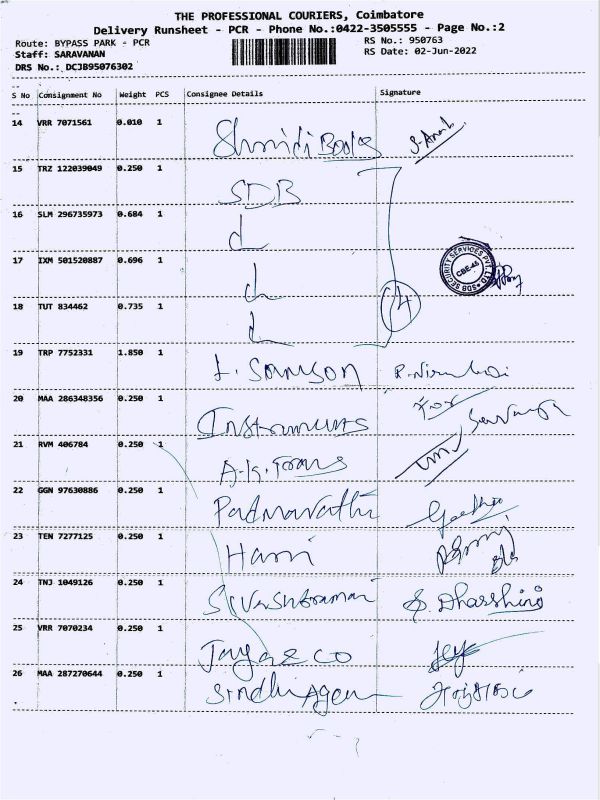 THE PROFESSIONAL COURIERS, Coimbatore
Delivery Runsheet - PCR - Phone No.:0422-3505555 - Page No.:2
Route: BYPASS PARK - PCR
RS No.: 950763
Staff: SARAVANAN
RS Date: 02-Jun-2022
DRS No.: DCJB95076302
S No Consignment No Weight PCS Consignee Details Signature
14 VRR 7071561 0.010 1 Books
15 TRZ 122039049 0.250 1 SDB
16 SLM 296735973 0.684 1
17 IXM 501520887 0.696 1
SDB SECURITY SERVICES PVT. LTD CBE-45
18 TUT 834462 0.735 1 4
19 TRP 7752331 1.850 1 Samson
20 MAA 286348356 0.250 1 Instruments
21 RVM 406784 0.250 1 A.K.
22 GGN 97630886 0.250 1 Padmavathi
23 TEN 7277125 0.250 1 Hari
24 TNJ 1049126 0.250 1 S. Dharshini
25 VRR 7070234 0.250 1 Jaya & CO
26 MAA 287270644 0.250 1 Sindhi